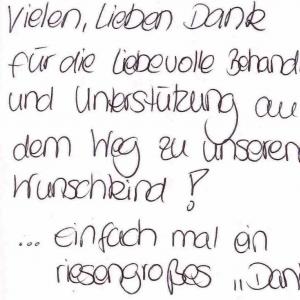 Vielen, Lieben Dank
für die liebevolle Behand
und Unterstützung au
dem Weg zu unseren
Wunschkind!
... einfach mal ein
riesengroßes „Dan